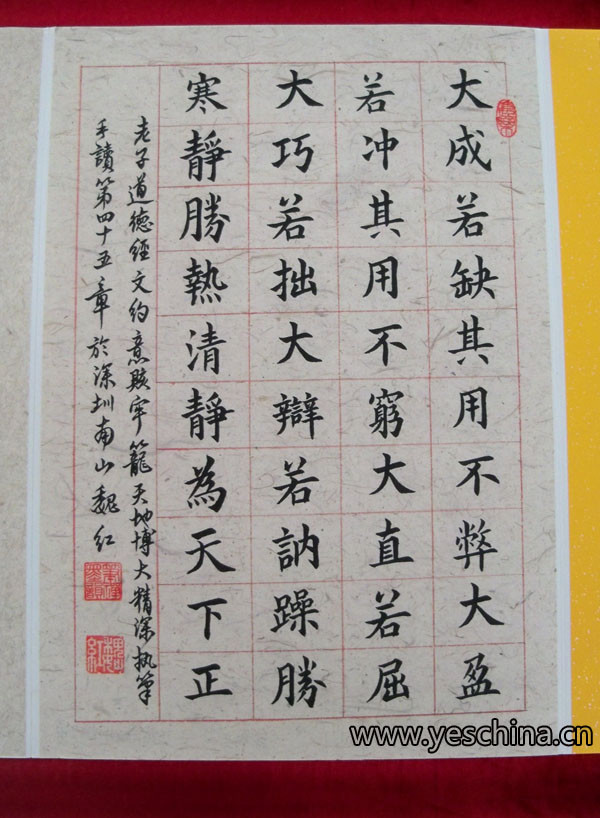 大成若缺其用不弊大盈
若冲其用不窮大直若屈
大巧若拙大辯若訥躁勝
寒靜勝熱清靜為天下正
老子道德經文約意賅牢籠天地博大精深执筆
手讀第四十五章於深圳南山魏红
魏红
www.yeschina.cn